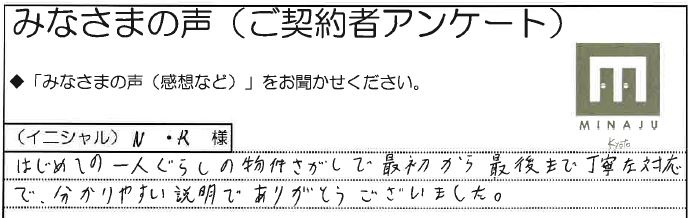 みなさまの声（ご契約者アンケート）
◆「みなさまの声（感想など）」をお聞かせください。
MINAJU
Kyoto
（イニシャル）N・K 様
はじめての一人ぐらしの物件さがしで最初から最後まで丁寧な対応
で、分かりやすい説明でありがとうございました。